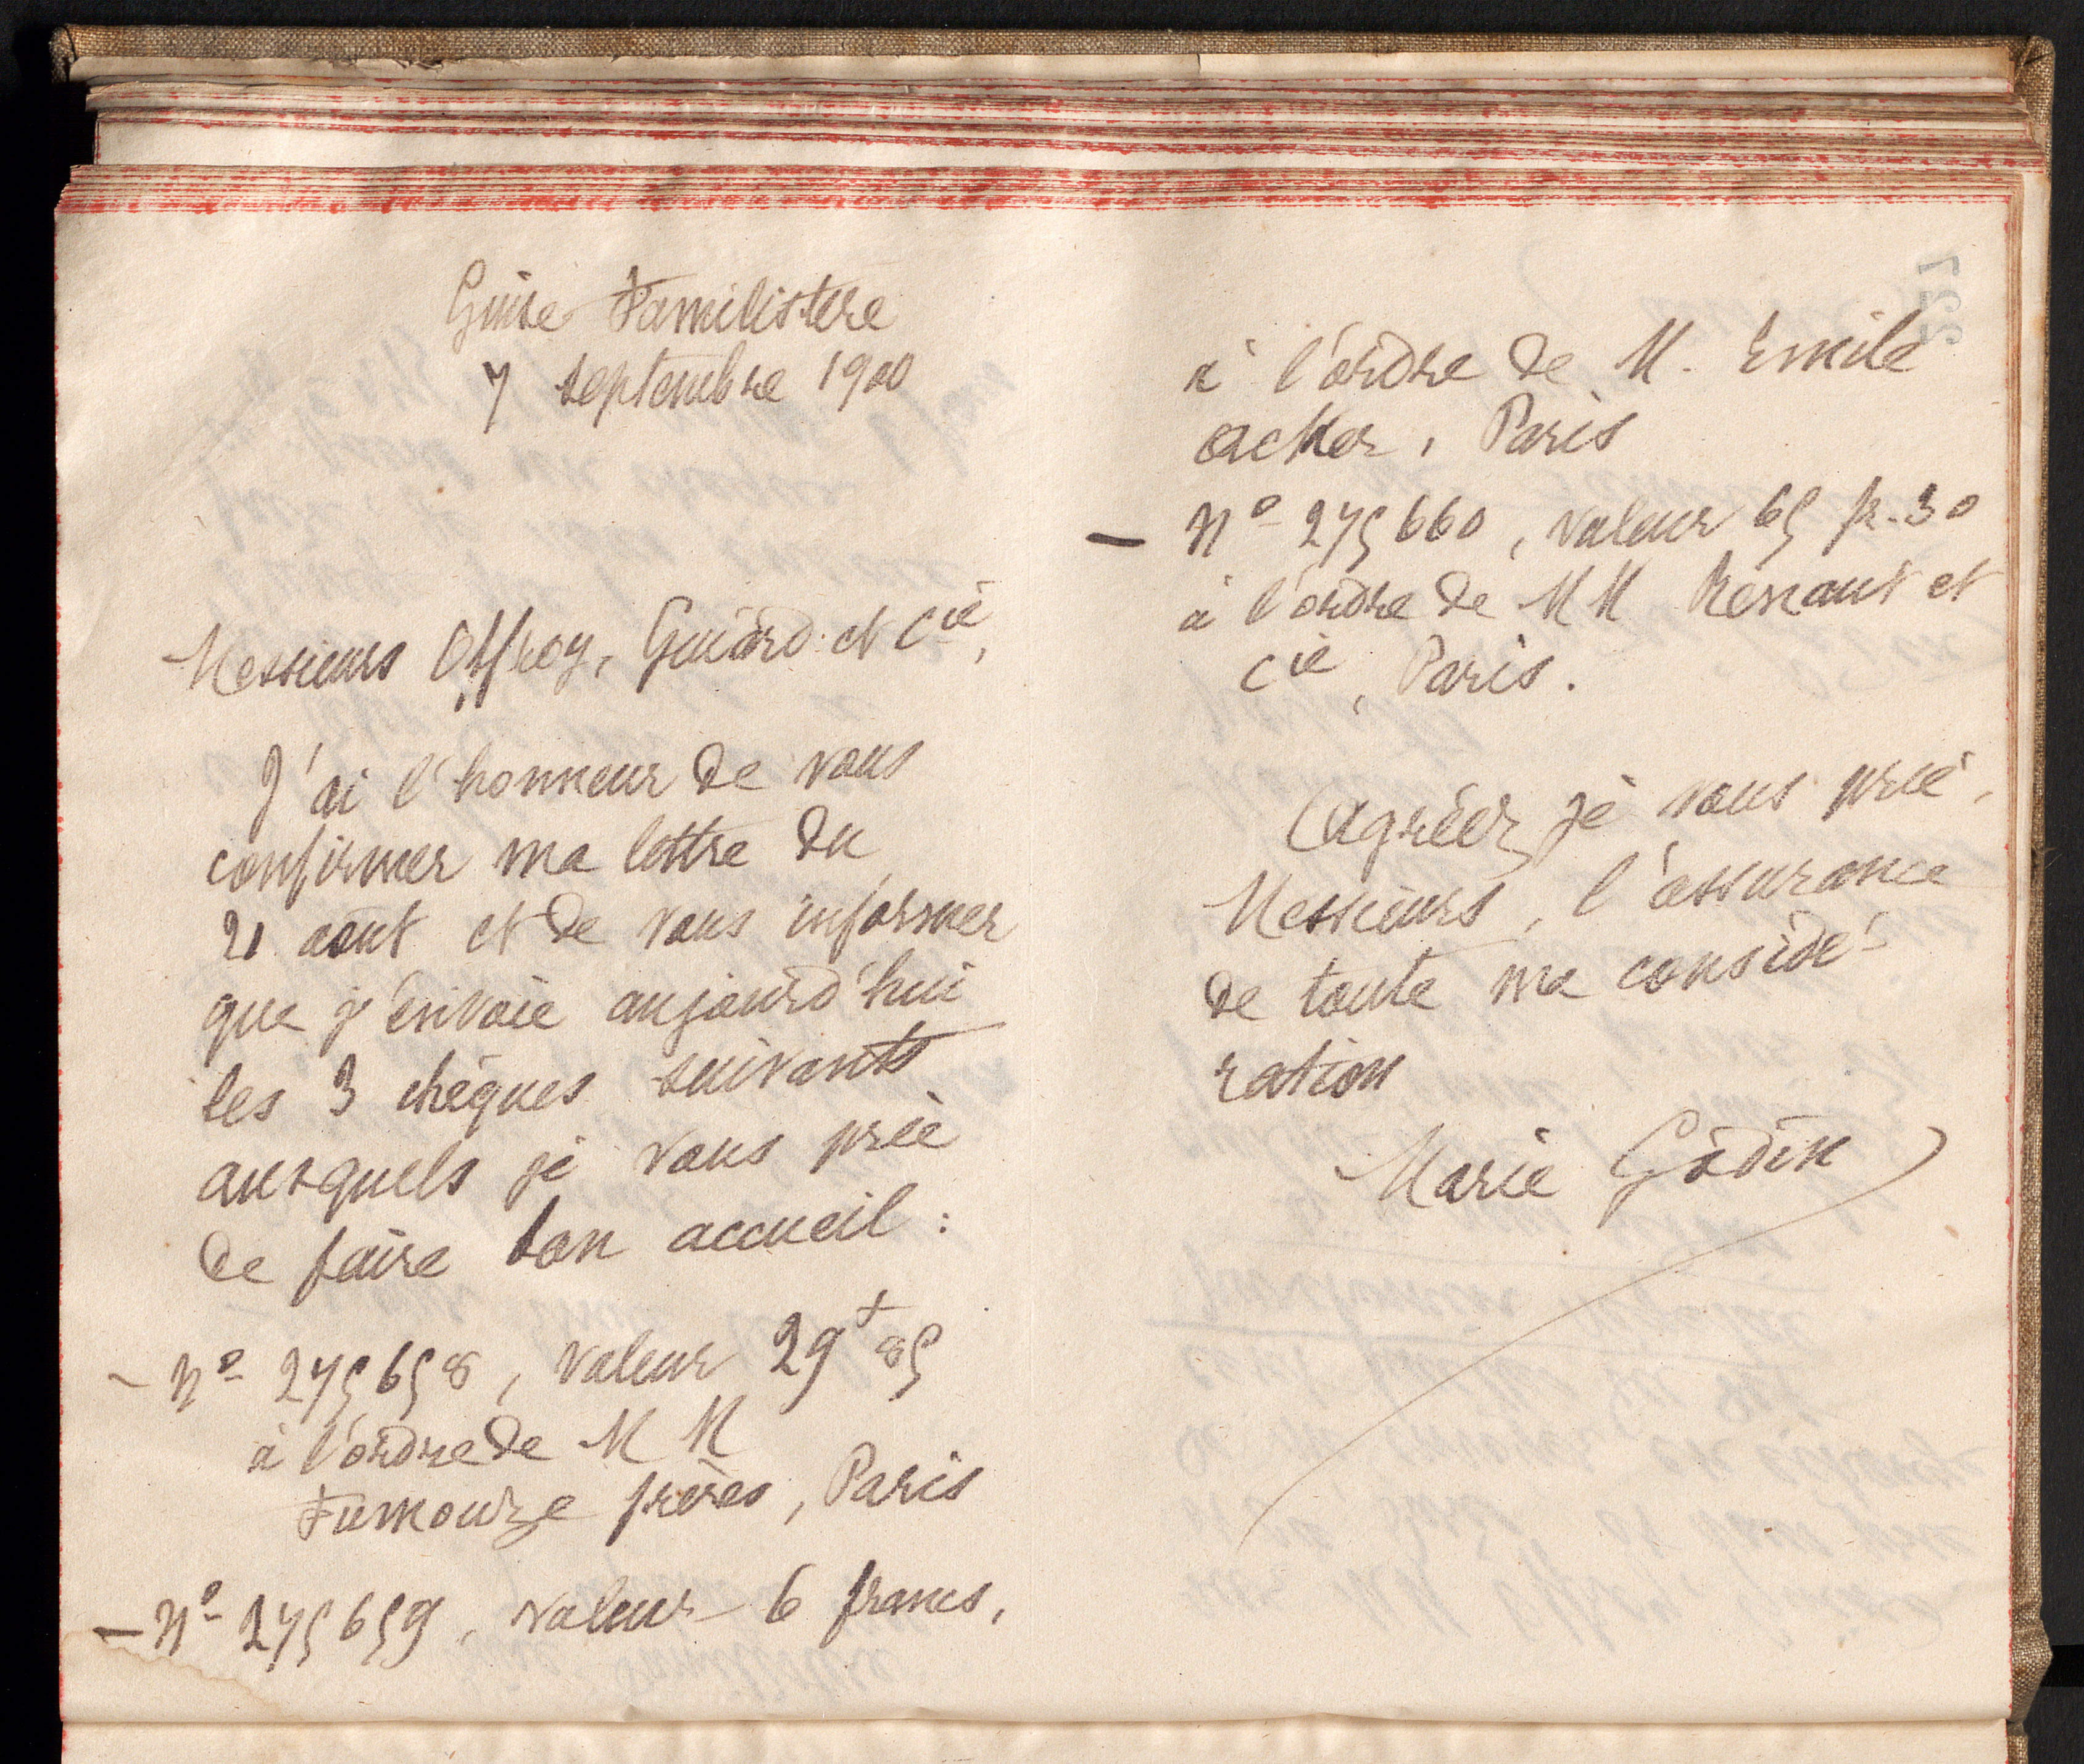 Guise Familistère
7 septembre 1900
Messieurs Offroy, Guiard et Cie,
J'ai l'honneur de vous
confirmer ma lettre du
21 août et de vous informer
que j'envoie aujourd'hui
les 3 chèques suivants
auxquels je vous prie
de faire bon accueil :
- No 275658, valeur 29f 85
à l'ordre de MM
Fumouze frères, Paris
- No 275659, valeur 6 francs,
à l'ordre de M. Emile
Acker, Paris
- No 275660, valeur 65 fr. 30
à l'ordre de MM et
Cie, Paris.
Agréez je vous prie,
Messieurs, l'assurance
de toute ma considé-
ration
Marie Godin